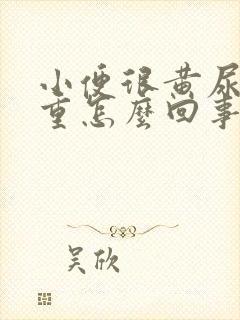 小便很黄尿
重怎麼回事
吴欣